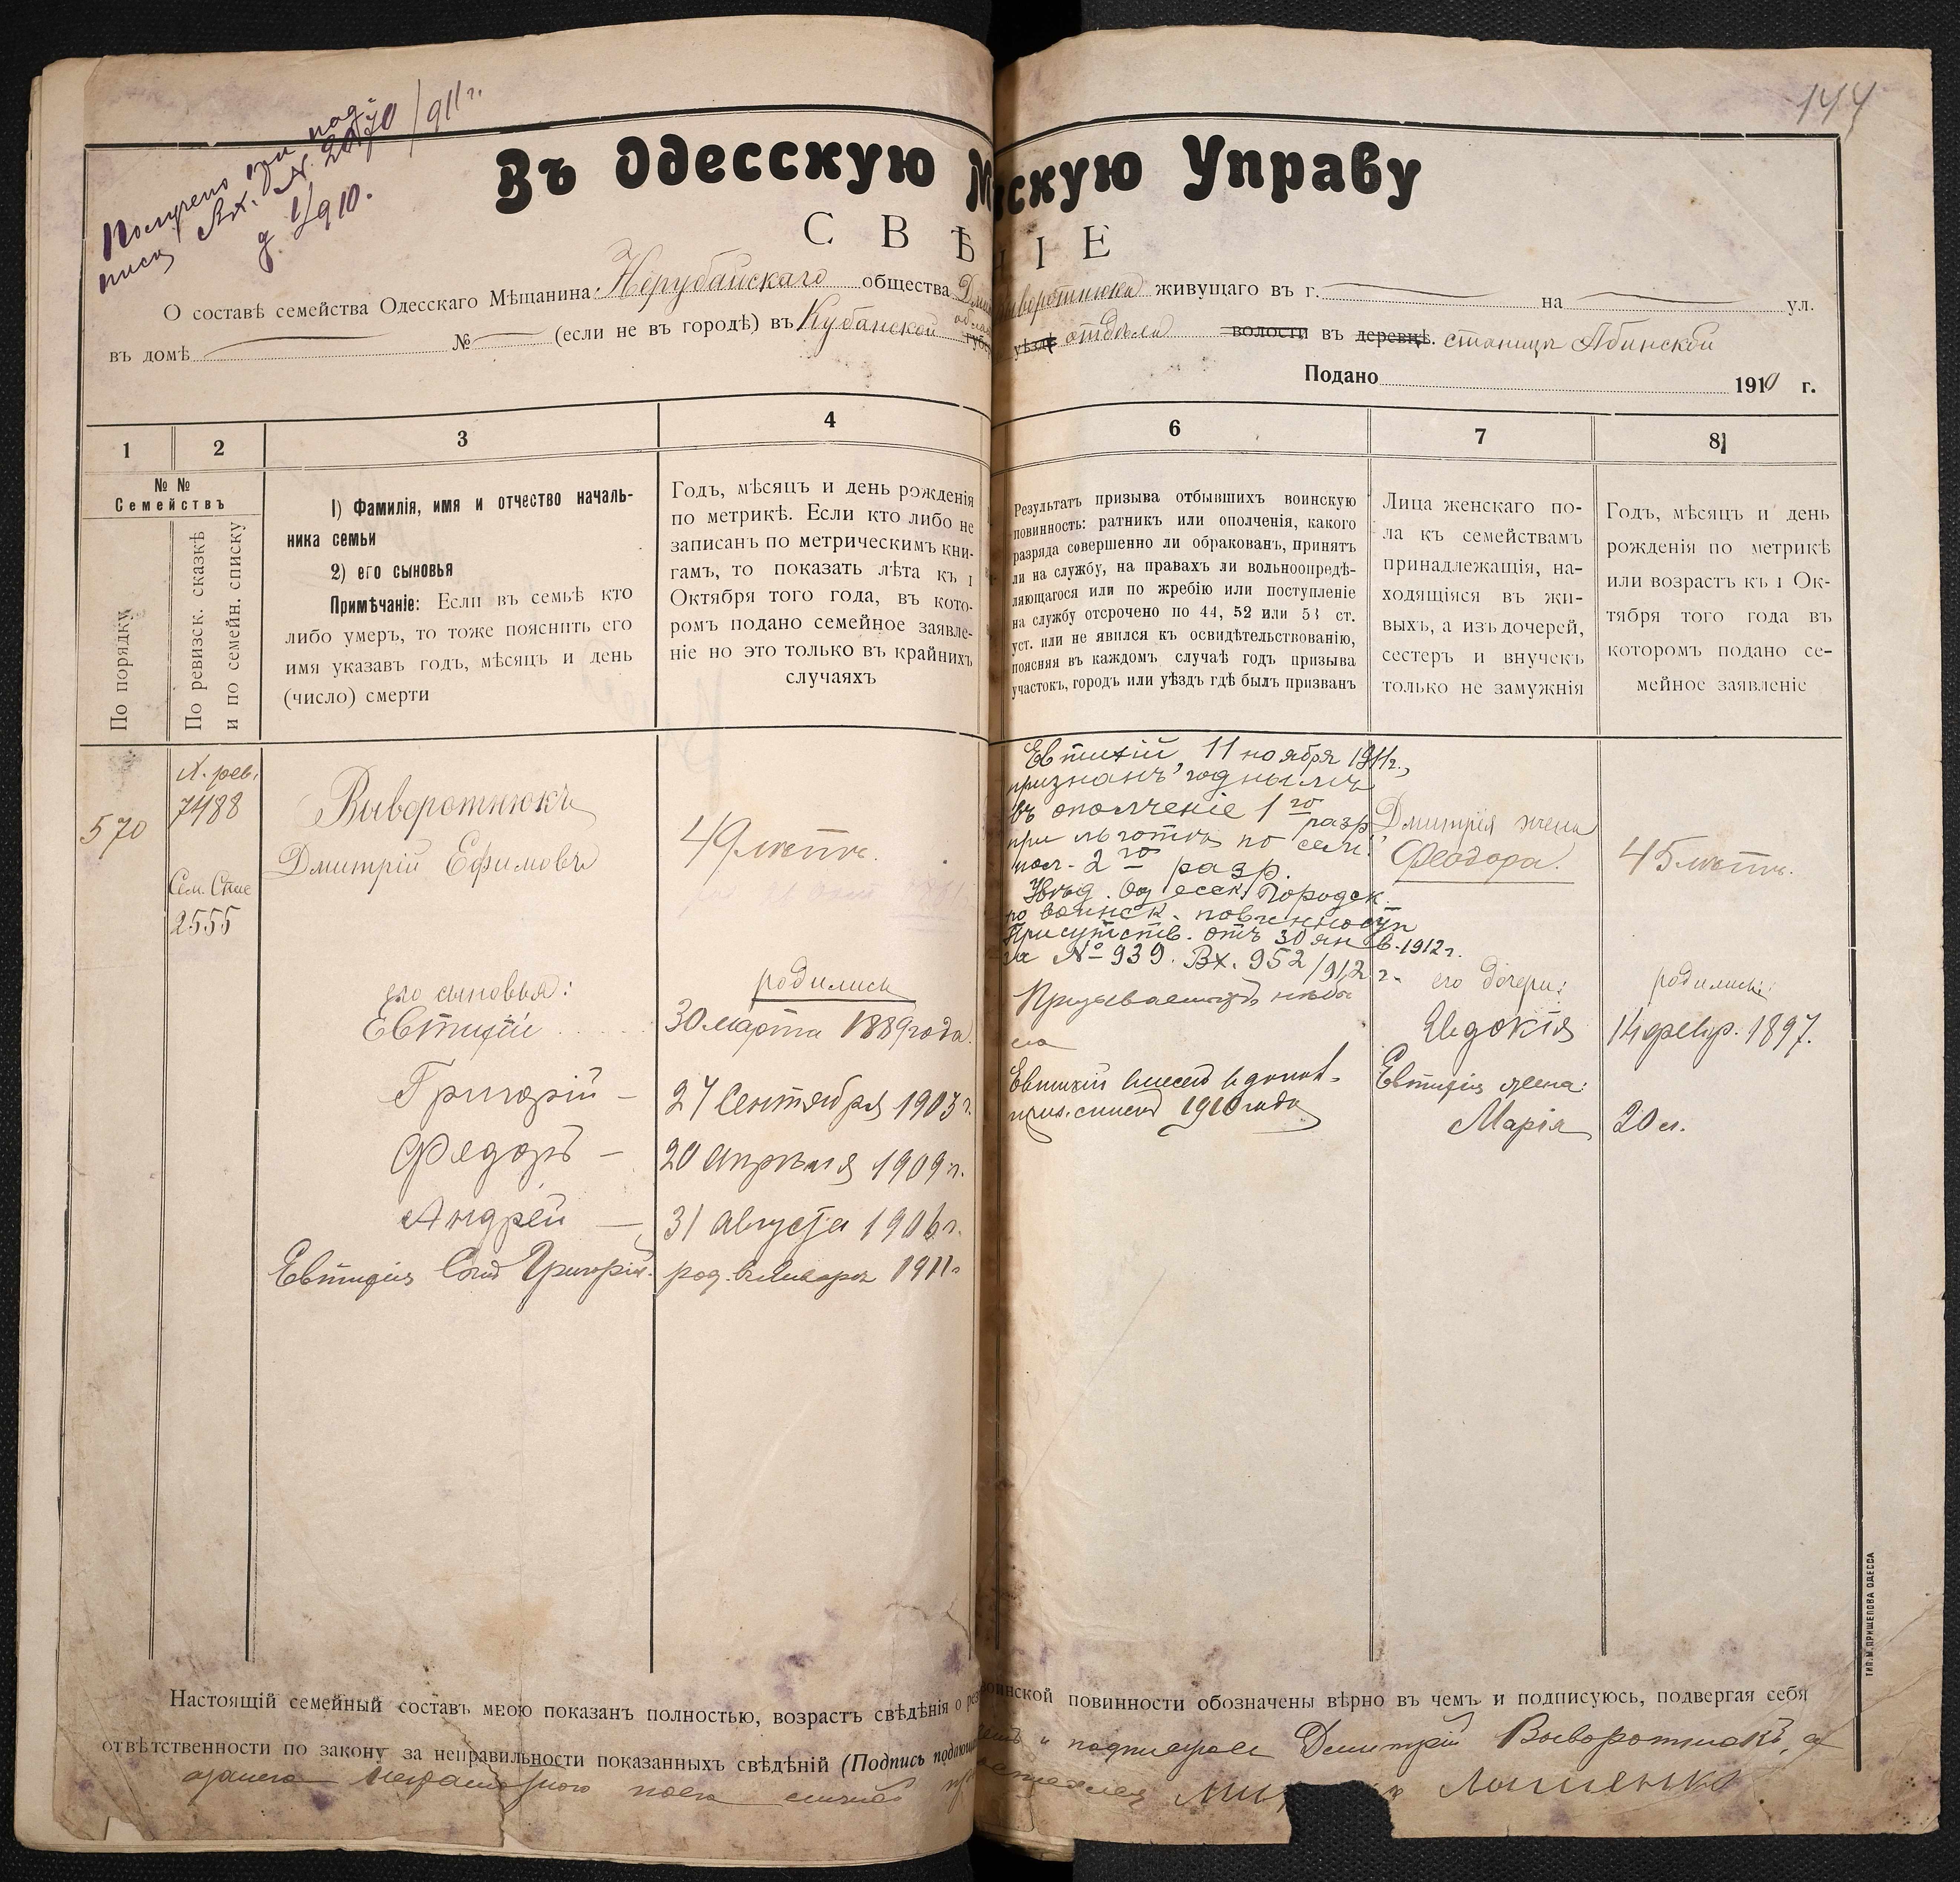 144
Получено при под
писк, Вх. №. 2070/911 г.
д. 1/910.
Въ Одесскую М скую Управу
СВѢ НІЕ
О составѣ семейства Одесскаго Мѣщанина Нерубайскаго общества живущаго въ г. на ул.
въ домѣ № (если не въ городѣ) въ Кубанской уѣздѣ отдѣла волости въ деревнѣ. станицѣ Абинской
Подано 1910 г.
1 2 3 4 6 7 8
№ №
Семействъ
По порядку
По ревизск. сказкѣ
и по семейн. списку
1) Фамилія, имя и отчество началь-
ника семьи
2) его сыновья
Примѣчаніе: Если въ семьѣ кто
либо умеръ, то тоже пояснить его
имя указавъ годъ, мѣсяцъ и день
(число) смерти
Годъ, мѣсяцъ и день рожденія
по метрикѣ. Если кто либо не
записанъ по метрическимъ кни-
гамъ, то показать лѣта къ 1
Октября того года, въ кото-
ромъ подано семейное заявле-
ніе но это только въ крайнихъ
случаяхъ
Результатъ призыва отбывшихъ воинскую
повинность: ратникъ или ополченія, какого
разряда совершенно ли обракованъ, принятъ
ли на службу, на правахъ ли вольноопредѣ-
ляющагося или по жребію или поступленіе
на службу отсрочено по 44, 52 или 53 ст.
уст. или не явился къ освидѣтельствованію,
поясняя въ каждомъ случаѣ годъ призыва
участокъ, городъ или уѣздъ гдѣ былъ призванъ
Лица женскаго по-
ла къ семействамъ
принадлежащія, на-
ходящіяся въ жи-
выхъ, а изъ дочерей,
сестеръ и внучекъ
только не замужнія
Годъ, мѣсяцъ и день
рожденія по метрикѣ
или возрастъ къ 1 Ок-
тября того года въ
которомъ подано се-
мейное заявленіе
570
X. рев.
7488
Сем. Спис
2555
Выворотнюкъ
Дмитрій Ефимовъ
49 лѣтъ.
его сыновья:
родились
Евтихій 30 марта 1889 года.
Григорій — 27 Сентября 1903 г.
Федоръ — 20 Апрѣля 1909 г.
Андрей — 31 Августа 1906 г.
Евтихія Сынъ Григорій. род. Января 1911 г
Евтихій 11 ноября 1911 г.,
признанъ годнымъ
въ ополченіе 1го разр.
при льготѣ по сем.
пол. 2го разр.
Увѣд. Одесск. Городск.
по воинск. повинности
Присутств. отъ 30 янв. 1912 г.
за № 939. Вх. 952/912 г.
Призываемыхъ небы
ло
Евтихій внесенъ въ допол.
приз. списокъ 1910 года
Дмитрія жена
Феодора.
45 лѣтъ.
его дочери:
родились:
Евдокія 14 февр. 1897.
Евтихія жена:
Марія 20 л.
Настоящій семейный составъ мною показанъ полностью, возрастъ свѣдѣнія о рез воинской повинности обозначены вѣрно въ чемъ и подписуюсь, подвергая себя
отвѣтственности по закону за неправильности показанныхъ свѣдѣній (Подпись подающ и Дмитрій Выворотнюкъ, а
ТИП. М. ПРИЩЕПОВА ОДЕССА